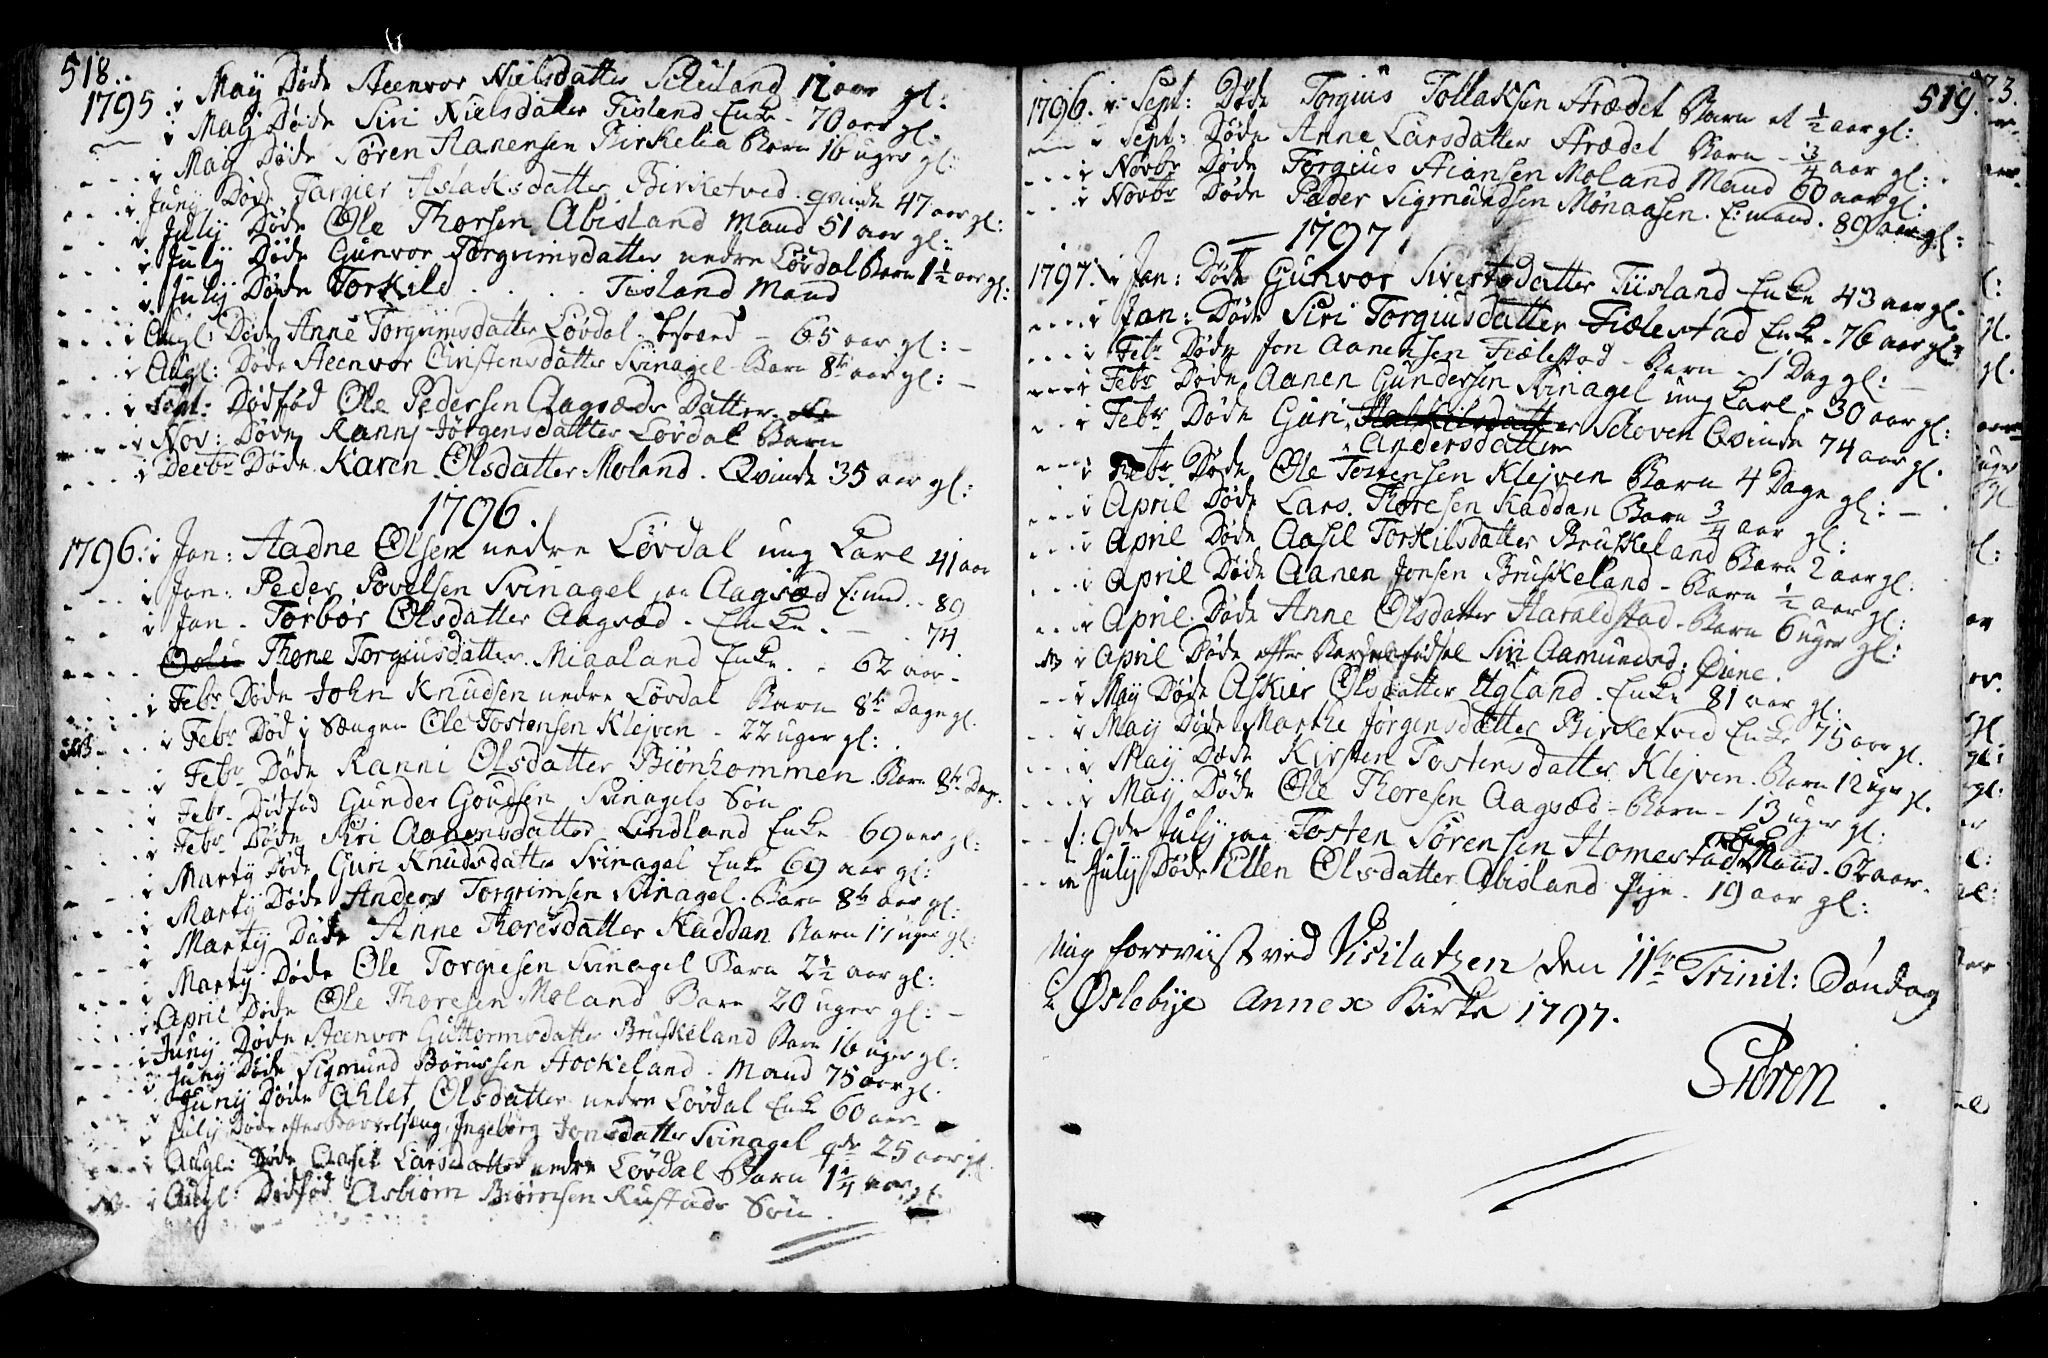 518.
1795 i May Døde Steenvor Nielsdatter 12 aar gl:
i May Døde Siri Nielsdatter Tisland Enke - 70 aar gl:
i May Døde Søren Aanensen Birkelia Barn 16 uger gl:
i Juny Døde Targier Aslaksdatter Birketved qvinde 47 aar gl:
i July Døde Ole Thorsen Abisland Mand 51 aar gl:
i July Døde Gunvor Torgrimsdatter nedre Løvdal Barn 1 1/2 aar gl:
i July Døde Torkild . . . . Tisland Mand
i Augl: Døde Anne Torgrimsdatter Løvdal - 65 aar gl: -
i Augl: Døde Steenvor Svinagel Barn 8te aar gl: -
i Sept: Dødfød Ole Pedersen Aagsæds Datter
i Nov: Døde Ranni Jørgensdatter Løvdal Barn
i Decbr Døde Karen Olsdatter Moland. Qvinde 35 aar gl:
1796.
1796. i Jan: Aadne Olsen nedre Løvdal ung Karl 41 aar
i Jan: Peder Povelsen Svinagel paa Aagsæd E:md - 89
i Jan - Torbor Olsdatter Aagsæd - Enke - 74
Thone Torgiusdatter Miaaland Enke - 62 aar -
i Febr Døde John Knudsen nedre Løvdal Barn 8te Dage gl.
i Febr Død i Sængen Ole Tostensen Klejven - 22 uger gl:
i Febr Døde Ranni Olsdatter Biønhommen Barn 8te Dage
i Febr Dødfød Gunder Svinagels Søn
i Febr Døde Siri Aanensdatter Lindland Enke 69 aar gl:
i Marty Døde Guri Knudsdatter Svinagel Enke 69 aar gl:
i Marty Døde Anders Torgrimsen Svinagel. Barn 8te aar gl:
i Marty Døde Anne Thoresdatter Kaddan Barn 11 uger gl:
i Marty Døde Ole Torgiesen Svinagel Barn 2 1/2 aar gl:
i April Døde Ole Thoresen Moland Barn 20 uger gl: -
i Juny Døde Steenvor Guttormsdatter Bruskeland Barn 16 uger gl:
i Juny Døde Sigmund Børusen Stockeland. Mand 75 aar gl.
i Juny Døde Ahlet Olsdatter nedre Løvdal Enke 60 aar
i July Døde efter Barselsæng Ingeborg Jonsdatter Svinagel qde 25 aar gl.
i Augl: Døde Aasil Larsdatter nedre Løvdal Barn 1 1/4 aar gl.
i Augl: Dødfød Asbiørn Biørnsen Rustads Søn.
519.
1796. i Sept: Døde Torgius Tollaksen Strædet Barn et 1/2 aar gl:
i Sept: Døde Anne Larsdatter Strædet Barn - 3/4 aar gl:
i Novbr Døde Torgius Stiansen Moland Mand 60 aar gl:
i Novbr Døde Peder Sigmundsen Mønaasen. E:mand. 89 aar gl:
1797.
1797. i Jan: Døde Gunvor Sivertsdatter Tiisland Enke 43 aar gl.
i Jan: Døde Siri Torgiusdatter Fiælestad Enke - 76 aar gl:
i Febr Døde Jon Aanensen Fiælestad - Barn - 1 Dag gl: -
i Febr Døde Aanen Gundersen Svinagel ung Karl - 30 aar gl:
i Febr Døde Guri Schoven Qvinde 74 aar gl.
Andersdatter
i Febr Døde Ole Tostensen Klejven Barn 4 Dage gl: -
i April Døde Lars Thoresen Kaddan Barn 3/4 aar gl:
i April Døde Aasil Torkilsdatter Bruskeland Barn 2 aar gl.
i April Døde Aanen Jonsen Bruskeland - Barn 1/2 aar gl:
i April Døde Anne Olsdatter Haraldstad - Barn 6 uger gl:
i April Døde efter Barselfødsel Siri Aamundsd: Øiene.
i May Døde Askier Olsdatter Ugland. Enke 81 aar gl:
i May Døde Marthe Jørgensdatter Birketved Enke 75 aar gl.
i May Døde Kirsten Tostensdatter Klejven - Barn 12 uger gl.
i May Døde Ole Thoresen Aagsæd - Barn - 13 uger gl:
d: 9de July paa Tosten Sørensen Homestad Mand - 62 aar.
i July Døde Ellen Olsdatter Abisland Pige - 19 aar gl:
Mig foreviist ved Visitatzen den 11te Trinit: Søndag
i Øslebye Annex Kirke 1797.